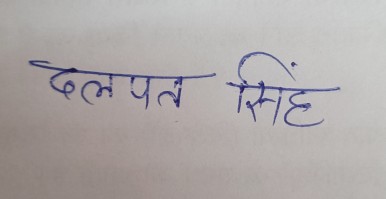 दलपत सिंह